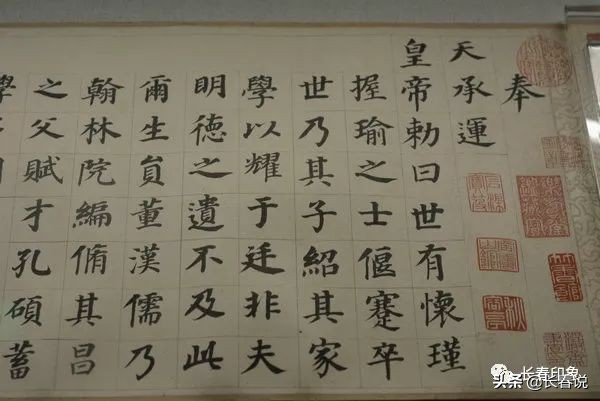 奉
天承運
皇帝勅曰世有懷瑾
握瑜之士偃蹇卒
世乃其子紹其家
學以耀于廷非夫
明德之遺不及此
爾生員董漢儒乃
翰林院編脩其昌
之父賦才孔碩蓄
學
长春印象
头条 @长春说